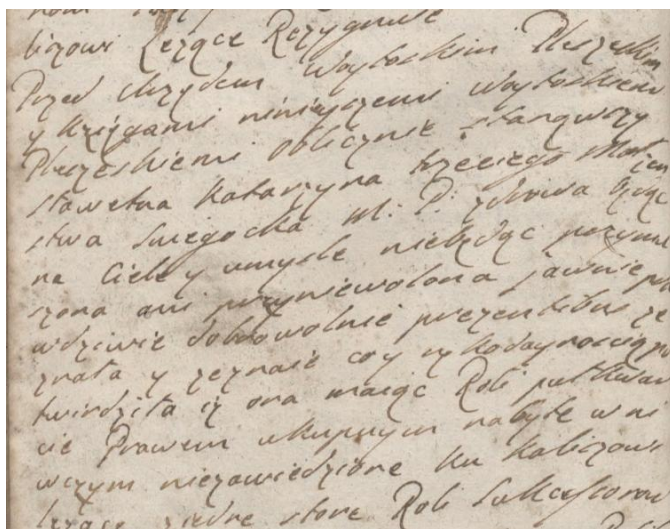 bizowi Lezące Rezygnuie
Przed Urzędem Woytoskim Pleszeskim
y Xięgami ninieyszemi Woytoskiemi
Pleszeskiemi oblicznie stanąwszy
sławetna Katarzyna trzeciego Małżen
stwa Smegocka zdrowa będąc
na Ciele y umysle niebędąc przymu
szona ani przyniewolona jawnie pra
wdziwie dobrowolnie prezentibus ze
znała y zeznaie
twirdziła iz ona maiąc Roli
cie Prawem ukupnym nabyte w ni
wczym niezawiedzione ku Kaliszowi
lezące iedne store Roli